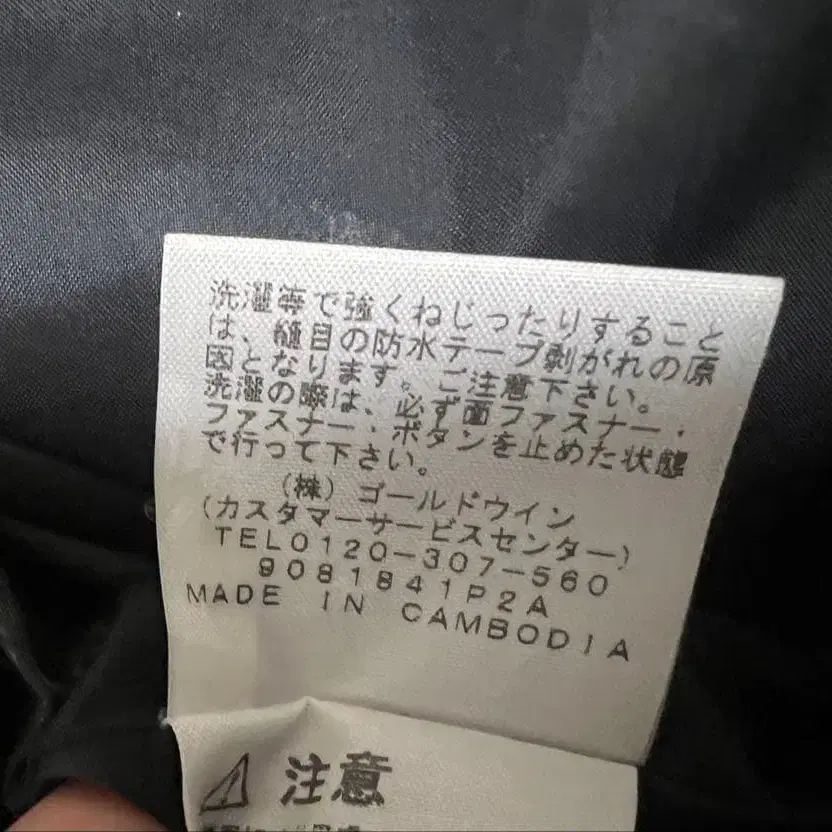 洗濯等で強くねじったりすること
は、縫目の防水テープ剥がれの原
因となります。ご注意下さい。
洗濯の際は、必ず面ファスナー・
ファスナー・ボタンを止めた状態
で行って下さい。
(株)ゴールドウイン
(カスタマーサービスセンター)
TEL0120-307-560
9081841P2A
MADE IN CAMBODIA
⚠ 注意